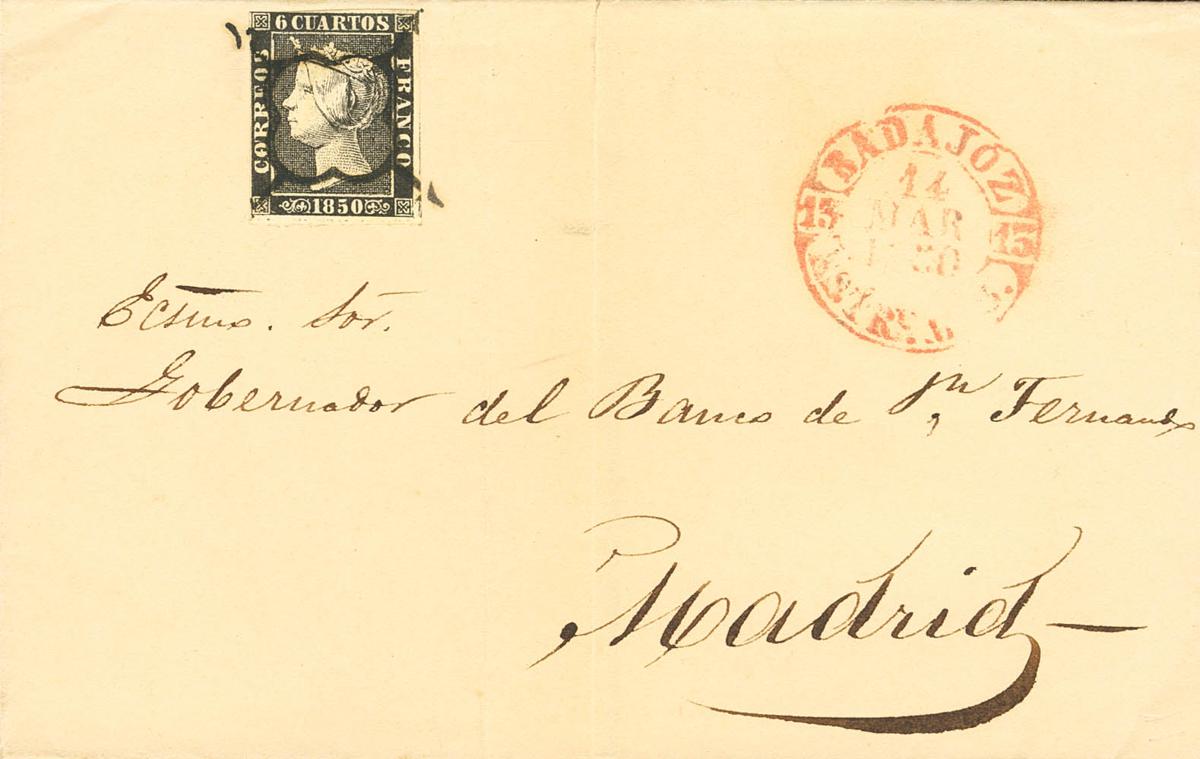 6 CUARTOS
CORREOS
FRANCO
1850
BADAJÓZ
15 15
14
MAR
1850
Ecsmo. Sor.
Gobernador del Banco de Sn Fernando
Madrid